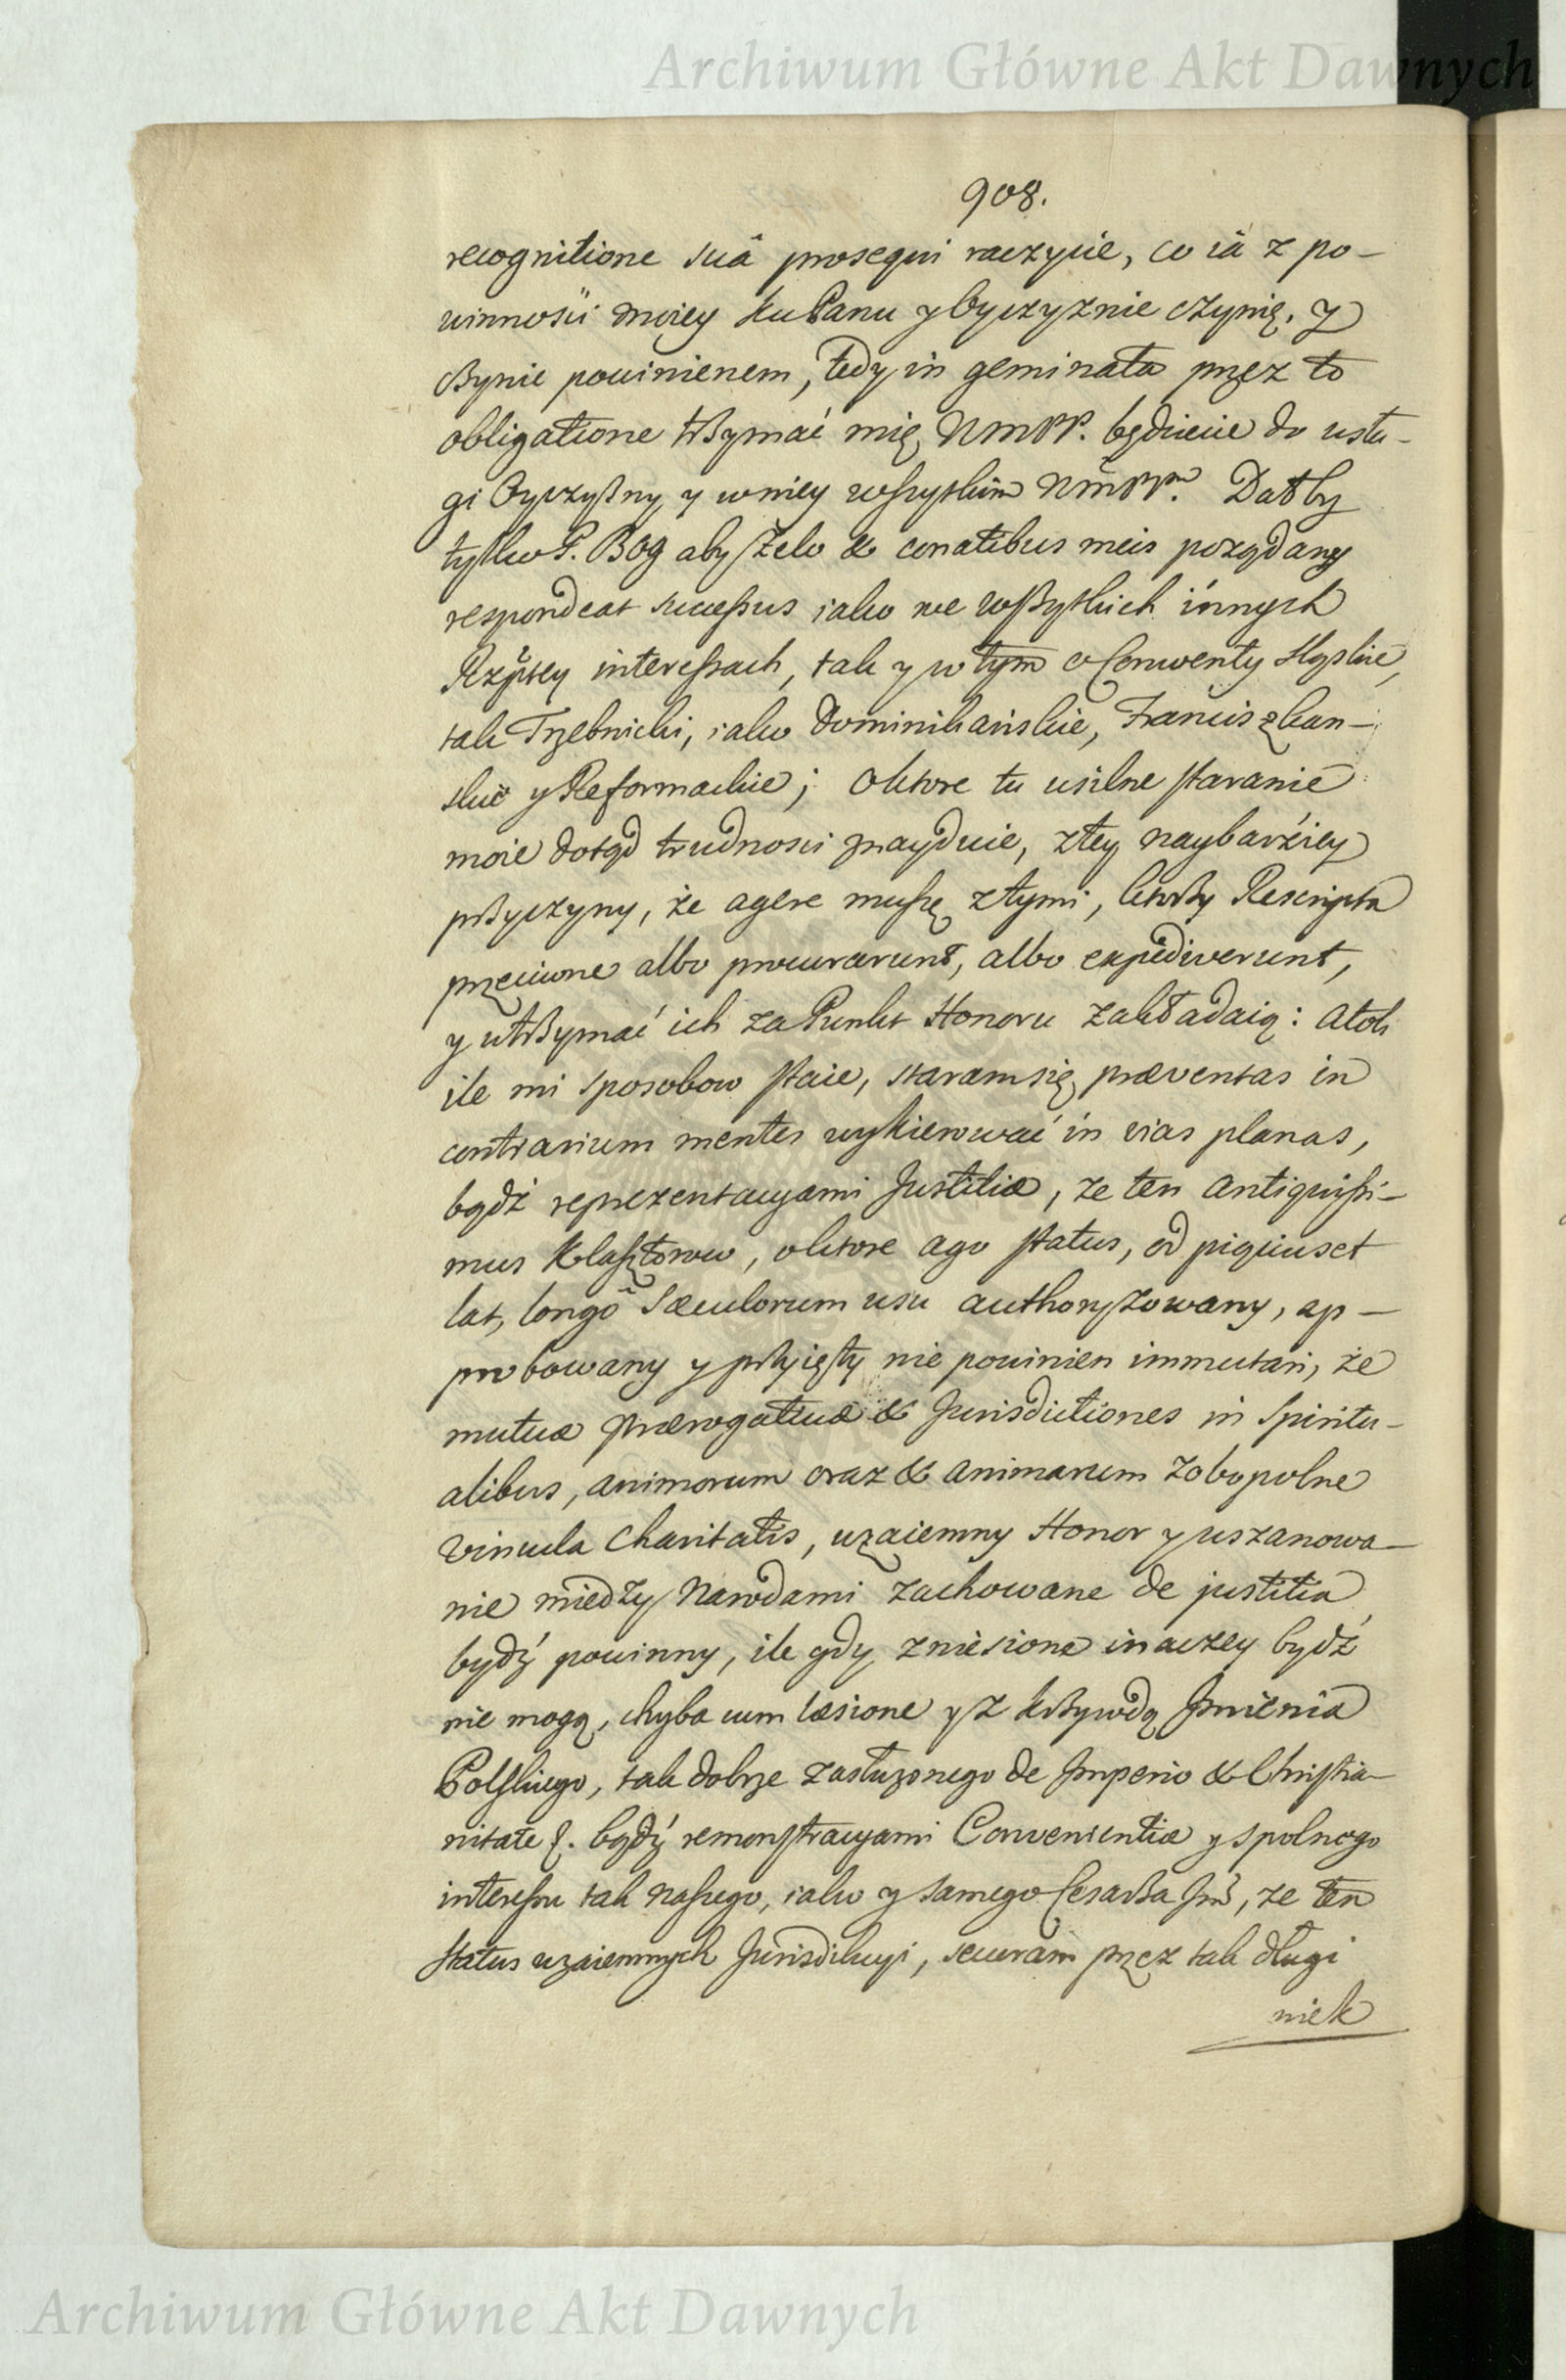 Archiwum Główne Akt Dawnych
908.
recognitione suâ prosequi raczycie, co iá z po-
winnośći moiey ku Panu y Oyczyznie czynię. Y
czynic powinienem, tedy in geminata przez to
obligatione trzymać mię WmPP. będziecie do usłu-
gi Oyczyzny y w niey wszystkim WmPP. Dałby
tylko P. Bog aby Zelo & conatibus meis pożądany
respondeat successus iako we wszytkich innych
Rzpltey interessach, tak y w tym o Conwenty Sląskie,
tak Trzebnicki, iako Dominikańskie, Franciszkan-
skie y Reformackie; O ktore tu usilne staranie
moie dotąd trudnosci znayduie, z tey naybarźiey
przyczyny, że agere muszę z tymi, ktorzy Rescripta
przeciwne albo procurarunt, albo expediverunt,
y utrzymać ich za Punkt Honoru zakładaią: Atoli
ile mi sposobow staie, staram się præventas in
contrarium mentes wykierować in vias planas,
bądź reprezentacyami Justitiæ, że ten antiquissi-
mus Klasztorow, o ktore ago status, od pięciuset
lat, longô Sæculorum usu authoryzowany, ap-
probowany y przyięty nie powinien immutari, że
mutuæ prærogativæ & Jurisdictiones in Spiritu-
alibus, animorum oraz & animarum zobopolne
vincula Charitatis, uzaiemny Honor y uszanowa-
nie między Narodami zachowane de justitia
bydź powinny, ile gdy zniesione inaczey bydź
nie mogą, chyba cum læsione y z krzywdą Jmienia
Polskiego, tak dobrze zasłużonego de Imperio & Christia-
nitate &. bądź remonstracyami Convenientiæ y spolnego
interessu tak naszego, iako y samego Cesarza Jmci, że ten
status uzaiemnych Jurisdikcyi, securam przez tak długi
wiek
Archiwum Główne Akt Dawnych